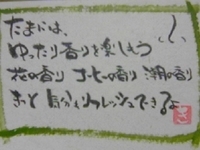 たまには、
ゆったり香りを楽しもう
花の香り コーヒーの香り 潮の香り
きっと 気分もリフレッシュできるよ